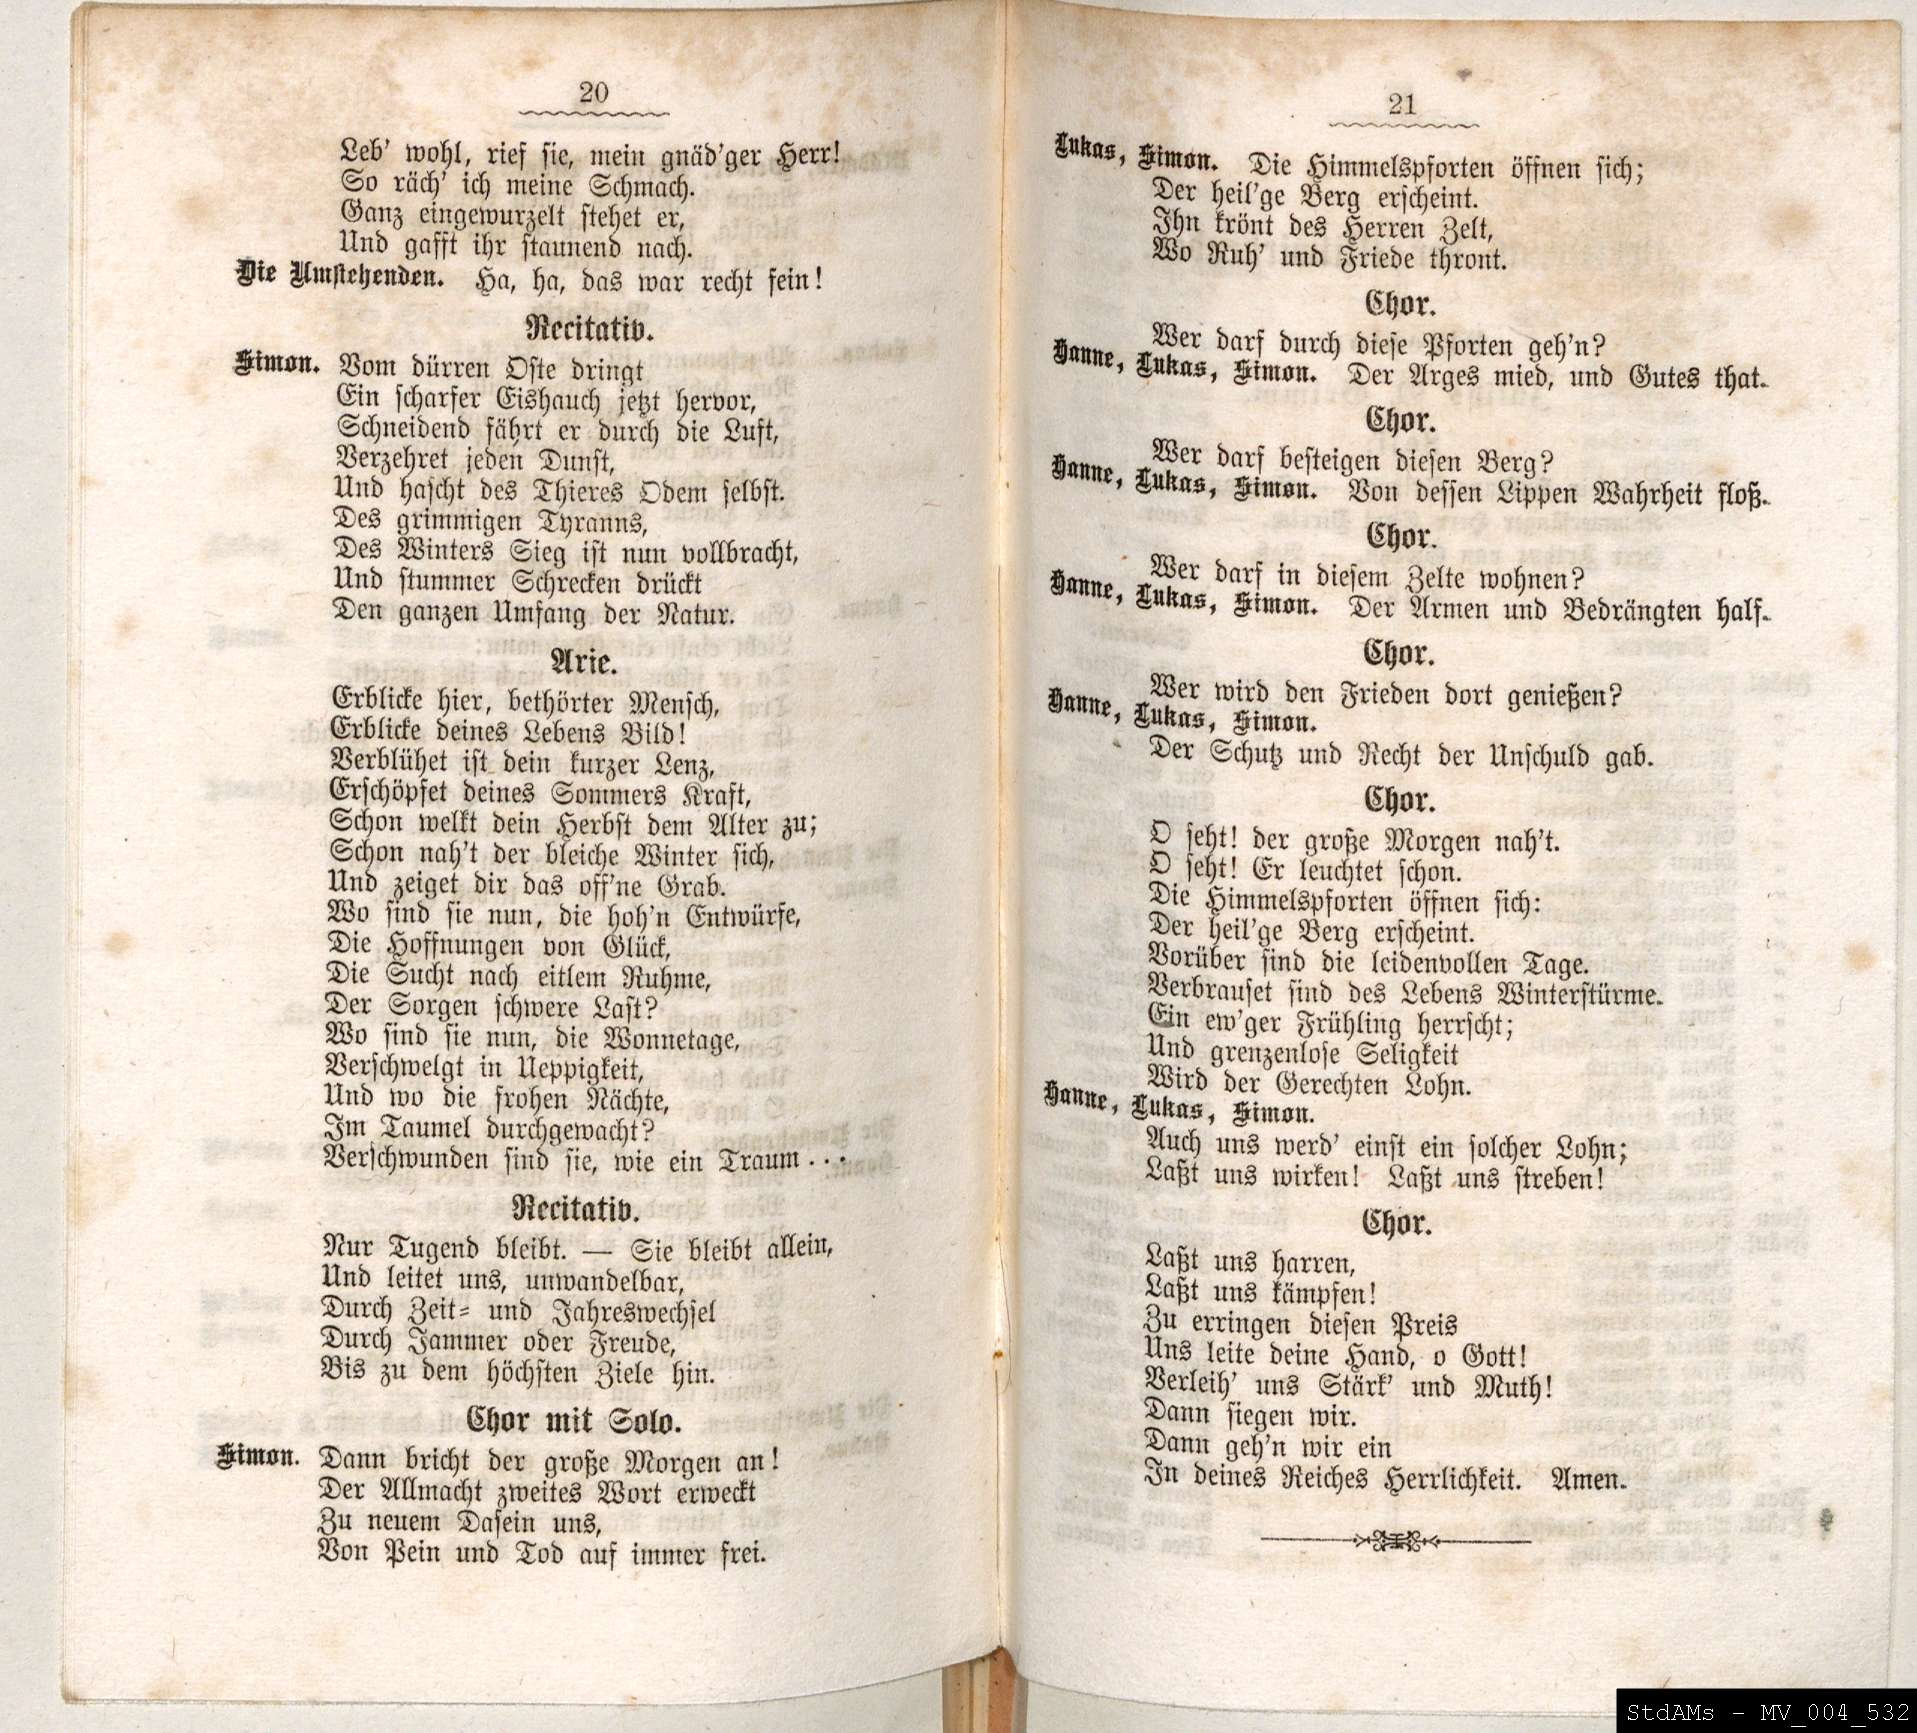 20
Leb' wohl, rief sie, mein gnäd'ger Herr!
So räch' ich meine Schmach.
Ganz eingewurzelt stehet er,
Und gafft ihr staunend nach.
Die Umstehenden. Ha, ha, das war recht fein!
Recitativ.
Simon. Vom dürren Oste dringt
Ein scharfer Eishauch jetzt hervor,
Schneidend fährt er durch die Luft,
Verzehret jeden Dunst,
Und hascht des Thieres Odem selbst.
Des grimmigen Tyranns,
Des Winters Sieg ist nun vollbracht,
Und stummer Schrecken drückt
Den ganzen Umfang der Natur.
Arie.
Erblicke hier, bethörter Mensch,
Erblicke deines Lebens Bild!
Verblühet ist dein kurzer Lenz,
Erschöpfet deines Sommers Kraft,
Schon welkt dein Herbst dem Alter zu;
Schon nah't der bleiche Winter sich,
Und zeiget dir das off'ne Grab.
Wo sind sie nun, die hoh'n Entwürfe,
Die Hoffnungen von Glück,
Die Sucht nach eitlem Ruhme,
Der Sorgen schwere Last?
Wo sind sie nun, die Wonnetage,
Verschwelgt in Ueppigkeit,
Und wo die frohen Nächte,
Im Taumel durchgewacht?
Verschwunden sind sie, wie ein Traum...
Recitativ.
Nur Tugend bleibt. — Sie bleibt allein,
Und leitet uns, unwandelbar,
Durch Zeit- und Jahreswechsel
Durch Jammer oder Freude,
Bis zu dem höchsten Ziele hin.
Chor mit Solo.
Simon. Dann bricht der große Morgen an!
Der Allmacht zweites Wort erweckt
Zu neuem Dasein uns,
Von Pein und Tod auf immer frei.
21
Lukas, Simon. Die Himmelspforten öffnen sich;
Der heil'ge Berg erscheint.
Ihn krönt des Herren Zelt,
Wo Ruh' und Friede thront.
Chor.
Wer darf durch diese Pforten geh'n?
Hanne, Lukas, Simon. Der Arges mied, und Gutes that.
Chor.
Wer darf besteigen diesen Berg?
Hanne, Lukas, Simon. Von dessen Lippen Wahrheit floß.
Chor.
Wer darf in diesem Zelte wohnen?
Hanne, Lukas, Simon. Der Armen und Bedrängten half.
Chor.
Wer wird den Frieden dort genießen?
Hanne, Lukas, Simon.
Der Schutz und Recht der Unschuld gab.
Chor.
O seht! der große Morgen nah't.
O seht! Er leuchtet schon.
Die Himmelspforten öffnen sich:
Der heil'ge Berg erscheint.
Vorüber sind die leidenvollen Tage.
Verbrauset sind des Lebens Winterstürme.
Ein ew'ger Frühling herrscht;
Und grenzenlose Seligkeit
Wird der Gerechten Lohn.
Hanne, Lukas, Simon.
Auch uns werd' einst ein solcher Lohn;
Laßt uns wirken! Laßt uns streben!
Chor.
Laßt uns harren,
Laßt uns kämpfen!
Zu erringen diesen Preis
Uns leite deine Hand, o Gott!
Verleih' uns Stärk' und Muth!
Dann siegen wir.
Dann geh'n wir ein
In deines Reiches Herrlichkeit. Amen.
StdAMs - MV_004_532